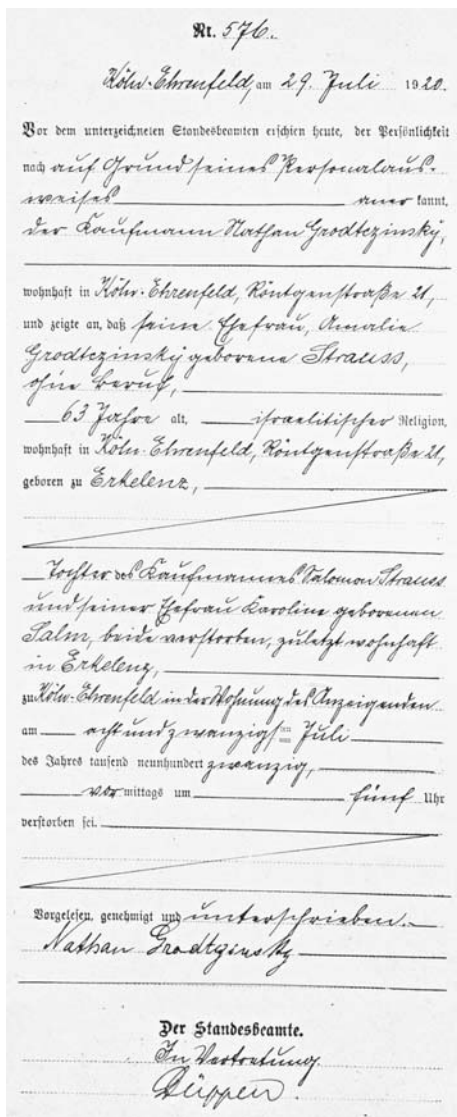 Nr. 576.
Köln-Ehrenfeld, am 29. Juli 1920.
Vor dem unterzeichneten Standesbeamten erschien heute, der Persönlichkeit
nach auf Grund seines Personalaus-
weises anerkannt,
der Kaufmann Nathan Grodtczinský,
wohnhaft in Köln-Ehrenfeld, Röntgenstraße 21,
und zeigte an, daß seine Ehefrau, Amalie
Grodtczinský geborene Strauss,
ohne Beruf,
63 Jahre alt, israelitischer Religion,
wohnhaft in Köln-Ehrenfeld, Röntgenstraße 21,
geboren zu Erkelenz,
Tochter des Kaufmannes Salomon Strauss
und seiner Ehefrau Karoline geborenen
Salm, beide verstorben, zuletzt wohnhaft
in Erkelenz,
zu Köln-Ehrenfeld in der Wohnung des Anzeigenden
am achtundzwanzigsten Juli
des Jahres tausend neunhundert zwanzig,
vormittags um fünf Uhr
verstorben sei.
Vorgelesen, genehmigt und unterschrieben.
Nathan Grodtginsky
Der Standesbeamte.
In Vertretung.
Düppen.